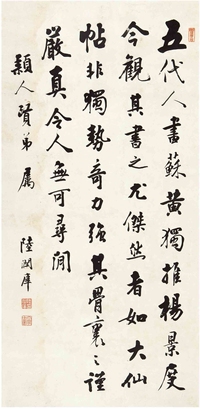 五代人書蘇黃獨推楊景度
今觀其書之尤傑然者如大仙
帖非獨勢奇力強其骨裏謹
嚴真令人無可尋間
穎人賢弟屬
陸潤庠